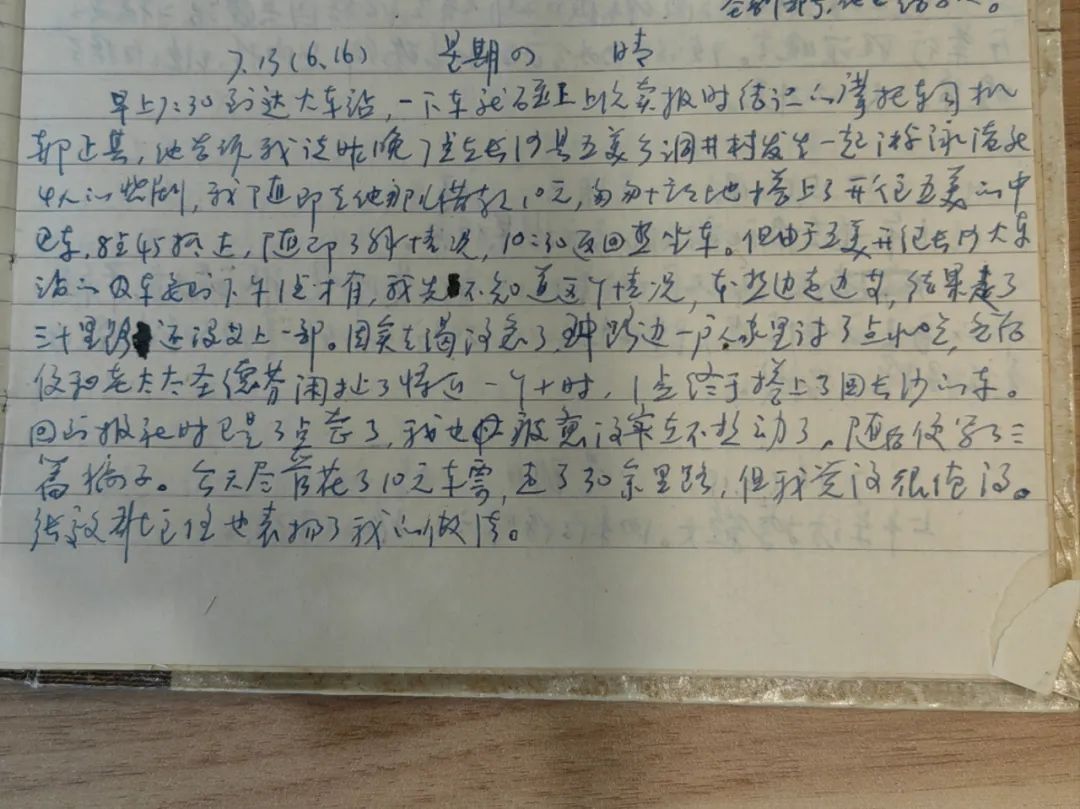 7.13(6.16) 星期四 晴
早上7:30到达大车站,一下车就碰上上次卖报时结识的摩托车司机
郭正其,他告诉我说昨晚7点左长沙县五美乡涧井村发生一起游泳淹死
4人的悲剧,我随即在他那儿借款10元,匆匆忙忙地搭上了开往五美的中
巴车,8点45抵达,随即了解情况,10:30返回坐车。但由于五美开往长沙大车
站的车要到下午1点才有,我先不知道这个情况,本想边走边等,结果走了
三十里路还没等上一部。因实在渴得急了,到路边一户人家里讨了点水喝,然后
便和老太太圣德芬闲扯了将近一个小时,1点终于搭上了回长沙的车。
回到报社时已是3点差了,我也疲惫得实在不想动了。随后便写了三
篇稿子。今天尽管花了10元车费,走了30余里路,但我觉得很值得。
张主任也表扬了我的做法。